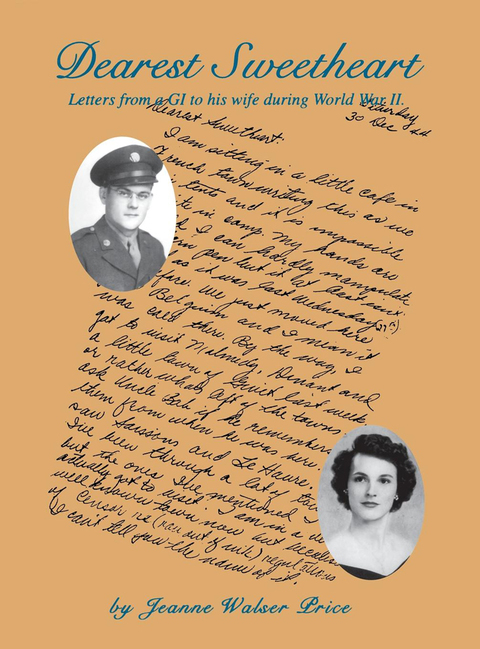 Dearest Sweetheart
Letters from a GI to his wife during World War II.
Saturday
30 Dec 44
Dearest Sweetheart:
I am sitting in a little cafe in
French town writing this as we
tents and it is impossible
in camp. My hands are
I can hardly manipulate
pen but it at least isn't
as it was last Wednesday (27th)
face. We just moved here
Belguim and I mean it
was cold there. By the way, I
got to visit Malmedy, Dinant and
a little town of last week
or rather what's left of the towns
ask Uncle Bob if he remembers
them from when he was here.
saw Soissons and Le Havre.
I've been through a lot of
but the ones I've mentioned I
actually got to visit. I am in a
well known town now but because
of censor is (ran out of ink) regulations
I can't tell you the name of it.
by Jeanne Walser Price